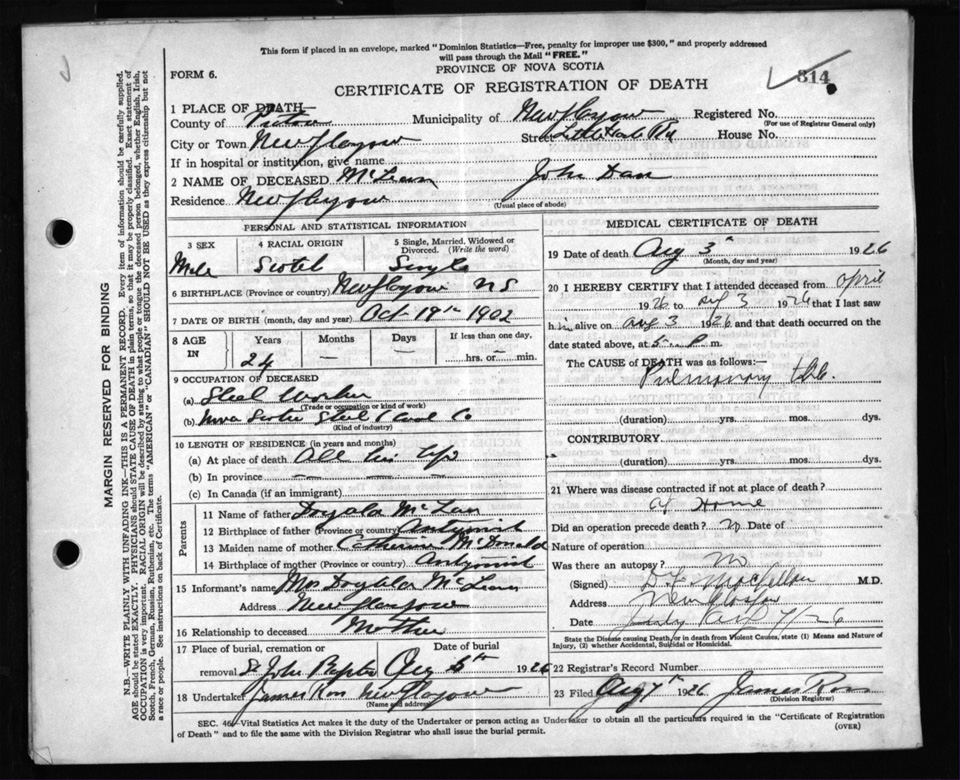 This form if placed in an envelope, marked "Dominion Statistics—Free, penalty for improper use $300," and properly addressed
will pass through the Mail "FREE."
FORM 6.
PROVINCE OF NOVA SCOTIA
314
CERTIFICATE OF REGISTRATION OF DEATH
1 PLACE OF DEATH—
County of Pictou Municipality of New Glasgow Registered No.
(For use of Registrar General only)
City or Town New Glasgow Street Little Harb Rd House No.
If in hospital or institution, give name
2 NAME OF DECEASED McLean John Dan
Residence New Glasgow
(Usual place of abode)
PERSONAL AND STATISTICAL INFORMATION
3 SEX 4 RACIAL ORIGIN 5 Single, Married, Widowed or
Divorced. (Write the word)
Male Scotch Single
6 BIRTHPLACE (Province or country) New Glasgow N S
7 DATE OF BIRTH (month, day and year) Oct 19th 1902
8 AGE
IN
Years Months Days If less than one day,
24 — — hrs. or min.
9 OCCUPATION OF DECEASED
(a) Steel Worker
(Trade or occupation or kind of work)
(b) Nova Scotia Steel & Coal Co
(Kind of industry)
10 LENGTH OF RESIDENCE (in years and months)
(a) At place of death All his life
(b) In province
(c) In Canada (if an immigrant)
Parents
11 Name of father McLean
12 Birthplace of father (Province or country) Antigonish
13 Maiden name of mother Catherine McDonald
14 Birthplace of mother (Province or country) Antigonish
15 Informant's name Mrs McLean
Address New Glasgow
16 Relationship to deceased Mother
17 Place of burial, cremation or Date of burial
removal St John Baptist Aug 5th 1926
18 Undertaker James Ross New Glasgow
(Name and address)
MEDICAL CERTIFICATE OF DEATH
19 Date of death Aug 3 1926
(Month, day and year)
20 I HEREBY CERTIFY that I attended deceased from April
1926 to Aug 3 1926 that I last saw
him alive on Aug 3 1926 and that death occurred on the
date stated above, at 5 P m.
The CAUSE of DEATH was as follows:—
Pulmonary tbc.
(duration) yrs. mos. dys.
CONTRIBUTORY
(duration) yrs. mos. dys.
21 Where was disease contracted if not at place of death?
At Home
Did an operation precede death? no Date of
Nature of operation
Was there an autopsy? no
(Signed) M.D.
Address New Glasgow
Date
State the Disease causing Death, or in death from Violent Causes, state (1) Means and Nature of
Injury, (2) whether Accidental, Suicidal or Homicidal.
22 Registrar's Record Number
23 Filed Aug 7th 1926 James Ross
(Division Registrar)
SEC. 46—Vital Statistics Act makes it the duty of the Undertaker or person acting as Undertaker to obtain all the particulars required in the "Certificate of Registration
of Death" and to file the same with the Division Registrar who shall issue the burial permit.
(OVER)
MARGIN RESERVED FOR BINDING
N.B.—WRITE PLAINLY WITH UNFADING INK—THIS IS A PERMANENT RECORD. Every item of information should be carefully supplied.
AGE should be stated EXACTLY. PHYSICIANS should STATE CAUSE OF DEATH in plain terms, so that it may be properly classified. Exact statement of
OCCUPATION is very important. RACIAL ORIGIN will be described by stating to what people or tongue the deceased person belonged, whether English, Irish,
Scotch, French, German, Russian, Ruthenian, etc. The terms "AMERICAN" or "CANADIAN" SHOULD NOT BE USED as they express citizenship but not
a race or people. See instructions on back of Certificate.